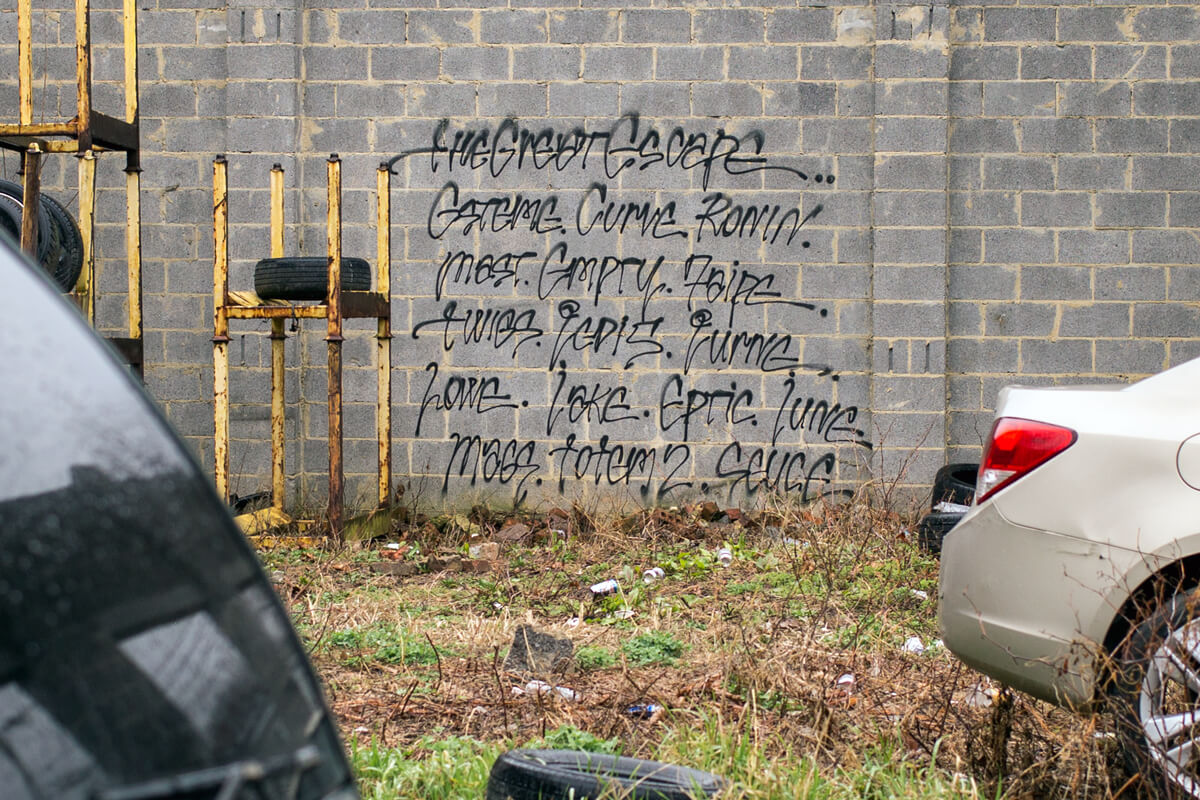 the Great Escape..
Gsteme. Curve. Ronin.
Mast. Empty. 7aipe.
twigs. jedis. jurne.
Lowe. Jake. Eptic. June.
Mags. totem2. Sauce.